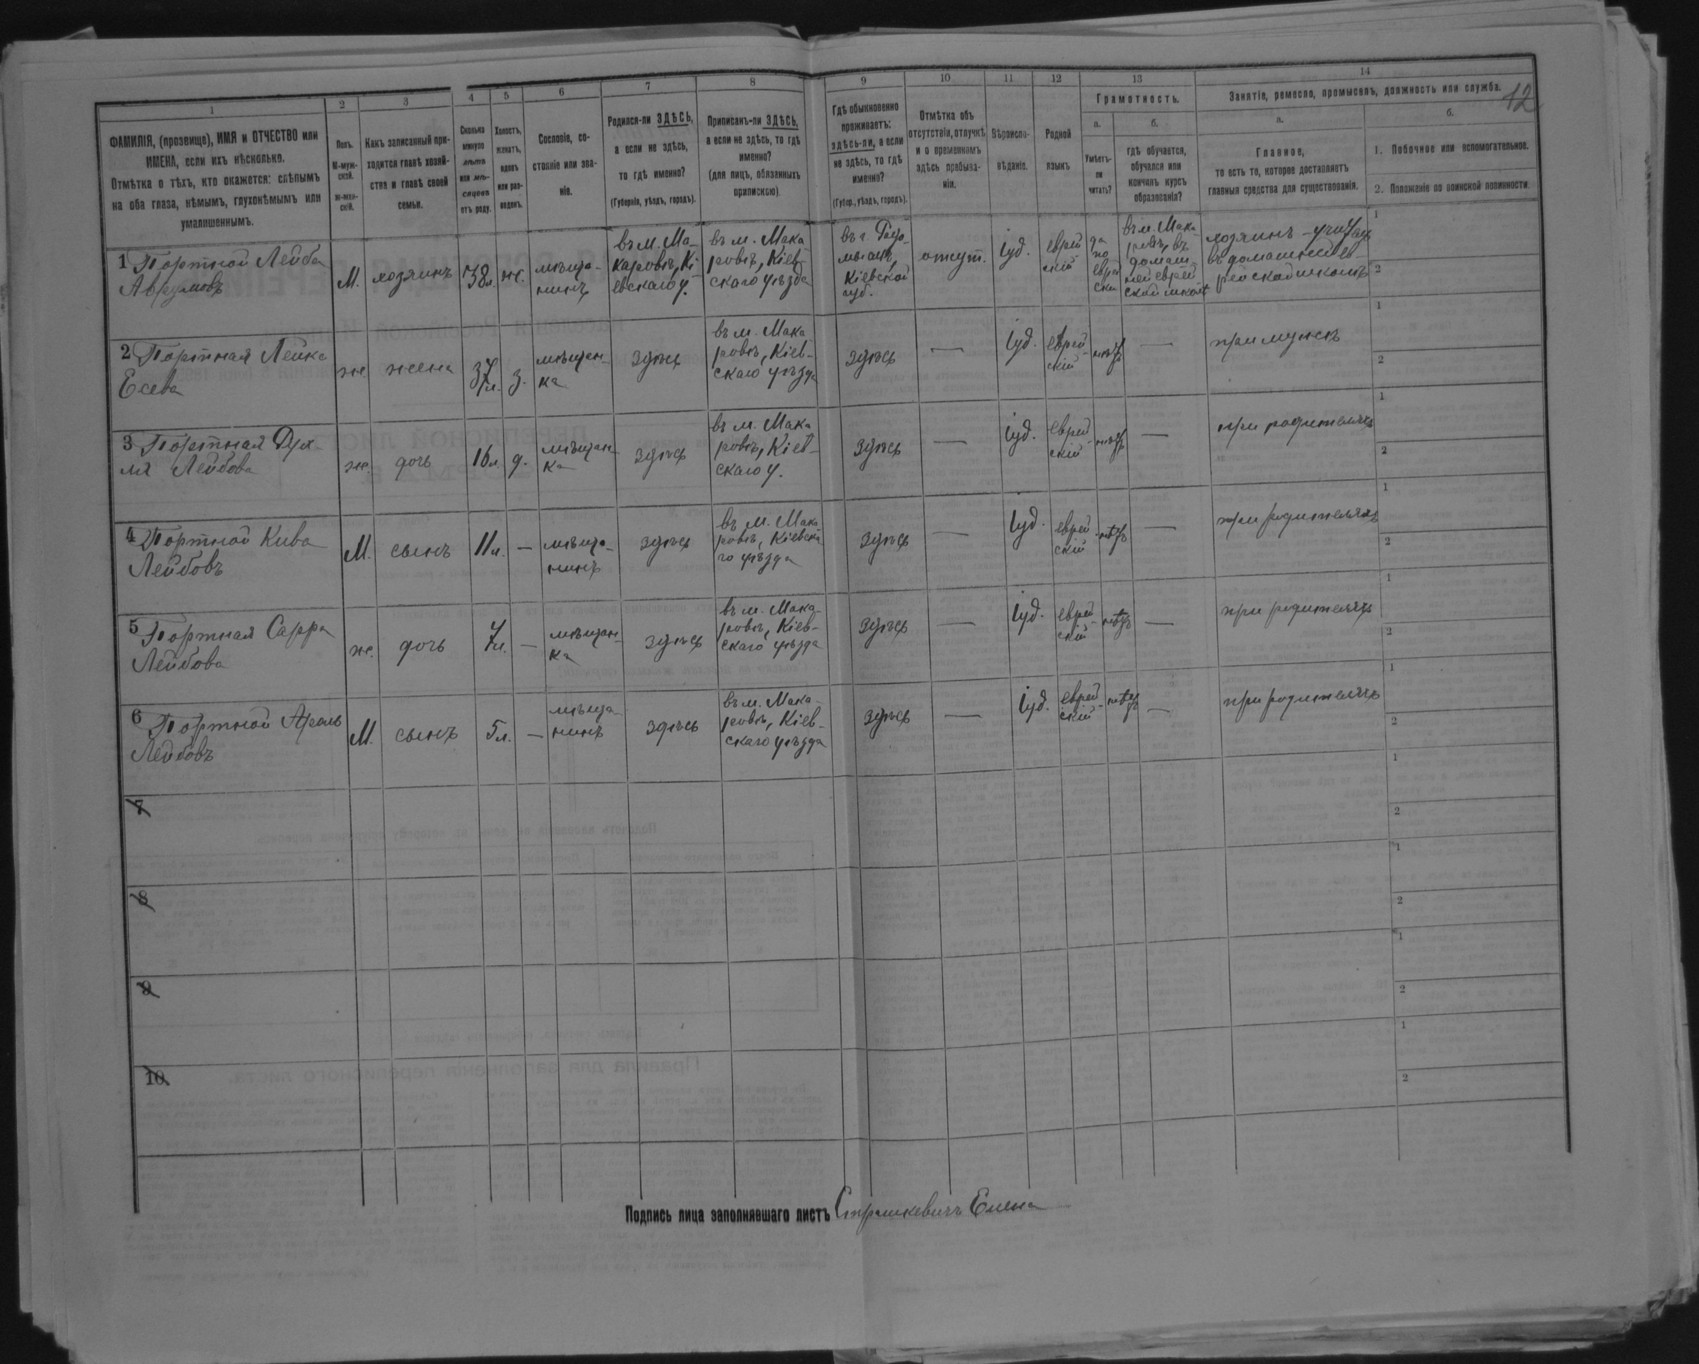 12
1
2
3
4
5
6
7
8
9
10
11
12
13
14
ФАМИЛІЯ, (прозвище), ИМЯ и ОТЧЕСТВО или
ИМЕНА, если ихъ нѣсколько.
Отмѣтка о тѣхъ, кто окажется: слѣпымъ
на оба глаза, нѣмымъ, глухонѣмымъ или
умалишеннымъ.
Полъ.
М-муж-
ской.
Ж-жен-
скій.
Какъ записанный при-
ходится главѣ хозяй-
ства и главѣ своей
семьи.
Сколько
минуло
лѣтъ
или мѣ-
сяцевъ
отъ роду.
Холостъ,
женатъ,
вдовъ
или раз-
веденъ.
Сословіе, со-
стояніе или зва-
ніе.
Родился-ли ЗДѢСЬ,
а если не здѣсь,
то гдѣ именно?
(Губернія, уѣздъ, городъ).
Приписанъ-ли ЗДѢСЬ,
а если не здѣсь, то гдѣ
именно?
(для лицъ, обязанныхъ
припискою).
Гдѣ обыкновенно
проживаетъ:
здѣсь-ли, а если
не здѣсь, то гдѣ
именно?
(Губер., уѣздъ, городъ).
Отмѣтка объ
отсутствіи, отлучкѣ
и о временномъ
здѣсь пребыва-
ніи.
Вѣроиспо-
вѣданіе.
Родной
языкъ
Грамотность.
а.
Умѣетъ-
ли
читать?
б.
гдѣ обучается,
обучался или
кончилъ курсъ
образованія?
Занятіе, ремесло, промыселъ, должность или служба.
а.
Главное,
то есть то, которое доставляетъ
главныя средства для существованія.
б.
1. Побочное или вспомогательное.
2. Положеніе по воинской повинности.
1 Портной Лейба
Аврумовъ
М.
хозяинъ
38л.
ж.
мѣща-
нинъ
въ м. Ма-
каровѣ, Кі-
евскаго у.
въ м. Мака
ровѣ, Кіев-
скаго уѣзда
въ г. Радо-
мыслѣ,
Кіевской
губ.
отсут.
іуд.
еврей
скій
да
по
евр.
ски
въ м. Мака-
ровѣ, въ
домаш-
ней еврей
ской школѣ
хозяинъ - учитель
въ домашней ев-
рейской школѣ
1
2
2 Портная Лейка
Есева
ж.
жена
37
л.
з.
мѣщан-
ка
здѣсь
въ м. Мака
ровѣ, Кіев-
скаго уѣзда
здѣсь
—
іуд.
еврей-
скій
нѣтъ
—
при мужѣ
1
2
3 Портная
Лейбова
ж.
дочь
16л.
д.
мѣщан-
ка
здѣсь
въ м. Мака
ровѣ, Кіев-
скаго у.
здѣсь
—
іуд.
еврей
скій
нѣтъ
—
при родителяхъ
1
2
4 Портной Кива
Лейбовъ
М.
сынъ
11л.
—
мѣща-
нинъ
здѣсь
въ м. Мака
ровѣ, Кіевска
го уѣзда
здѣсь
—
іуд.
еврей
скій
нѣтъ
—
при родителяхъ
1
2
5 Портная Сарра
Лейбова
ж.
дочь
7л.
—
мѣщан-
ка
здѣсь
въ м. Мака
ровѣ, Кіев-
скаго уѣзда
здѣсь
—
іуд.
еврей
скій
нѣтъ
—
при родителяхъ
1
2
6 Портной
Лейбовъ
М.
сынъ
5л.
—
мѣща-
нинъ
здѣсь
въ м. Мака-
ровѣ, Кіев-
скаго уѣзда
здѣсь
—
іуд.
еврей-
скій
нѣтъ
—
при родителяхъ
1
2
7
1
2
8
1
2
9
1
2
10.
1
2
Подпись лица заполнявшаго листъ Страшкевичъ Елена